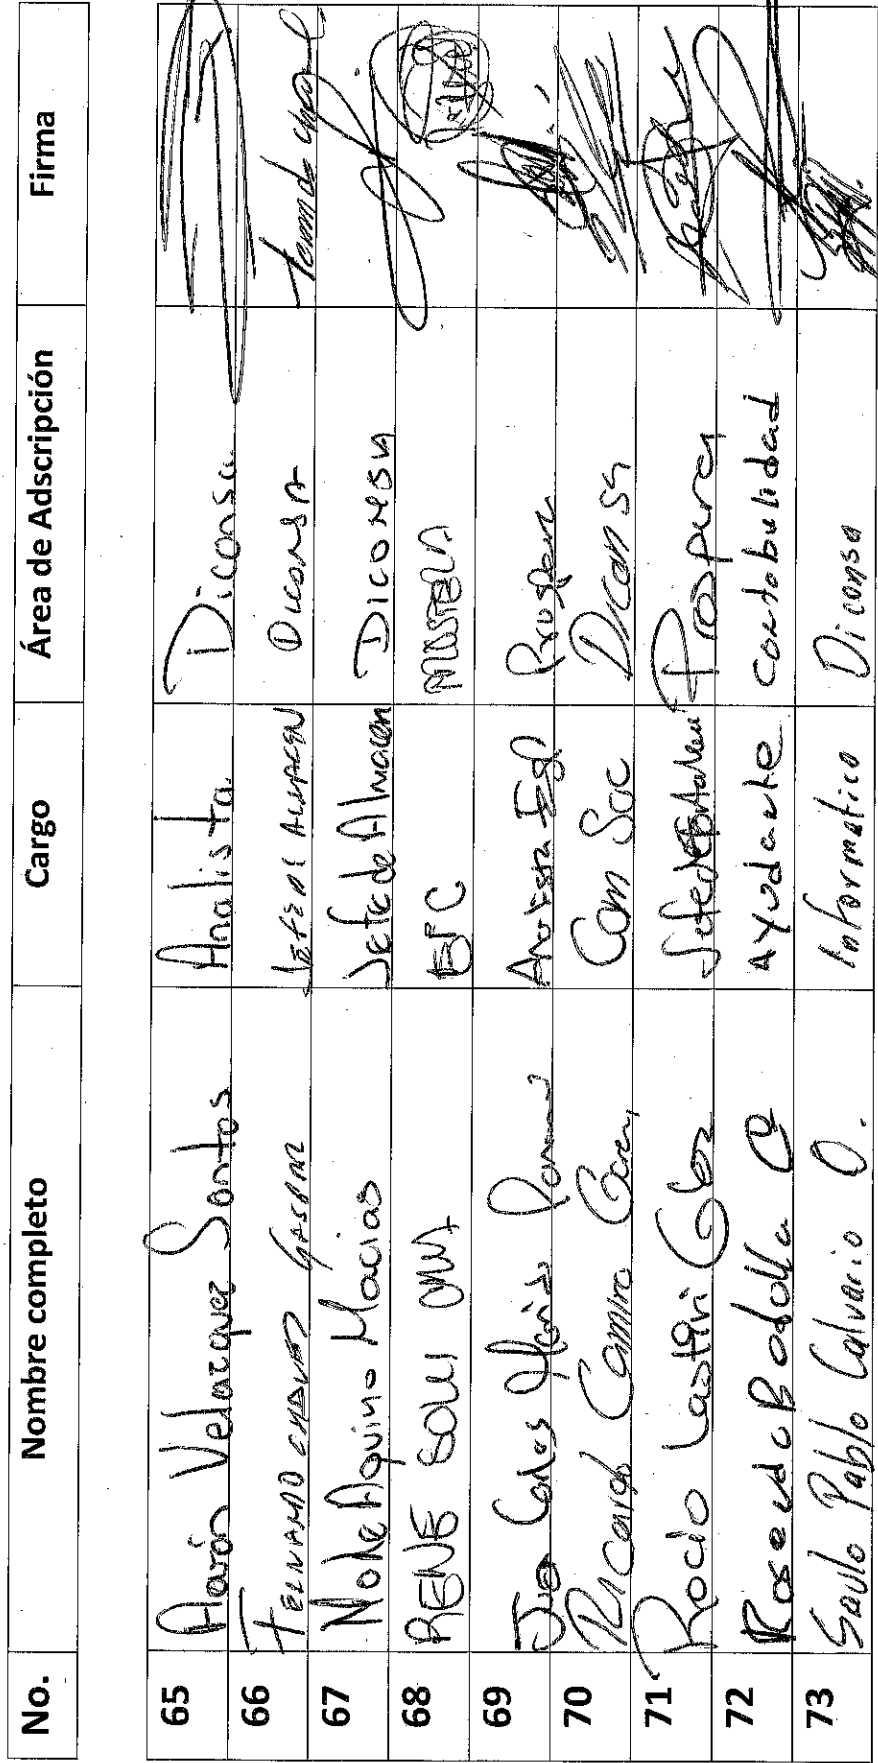 No. Nombre completo Cargo Área de Adscripción Firma
65 Aarón Velazquez Santos Analista Diconsa
66 FERNANDO CHAVEZ GASPAR JEFE DE ALMACEN DICONSA
67 Nohe Aquino Macias Jefe de Almacen DICONSA
68 RENE SOLI
69 Carlos Prospera
70 Ricardo Com Soc Diconsa
71 Rocio Lastiri Glez Prospera
72 Rosendo Badilla C Ayudante Contabilidad
73 Saulo Pablo Calvario O. Informatico Diconsa